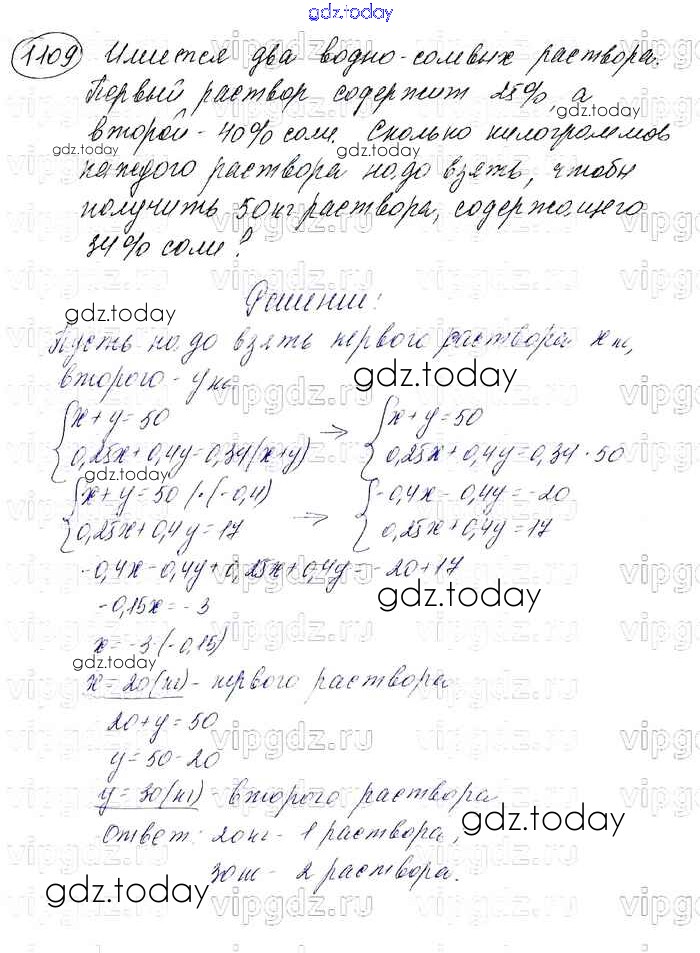 gdz.today
1109 Имеется два водно-солевых раствора.
Первый раствор содержит 25%, а
второй - 40% соли. Сколько килограммов
gdz.today gdz.today
каждого раствора надо взять, чтобы
получить 50 кг раствора, содержащего
34% соли?
Решение:
gdz.today
Пусть надо взять первого раствора x кг,
второго - y кг
gdz.today
{x+y=50 → {x+y=50
0,25x+0,4y=0,34(x+y) 0,25x+0,4y=0,34·50
gdz.today
{x+y=50 |·(-0,4) → {-0,4x-0,4y=-20
0,25x+0,4y=17 0,25x+0,4y=17
-0,4x-0,4y+0,25x+0,4y=-20+17
-0,15x=-3
gdz.today
x=-3:(-0,15)
gdz.today
x=20(кг) - первого раствора
20+y=50
y=50-20
y=30(кг) - второго раствора
Ответ: 20кг - 1 раствора,
gdz.today
30кг - 2 раствора.
gdz.today
vipgdz.ru